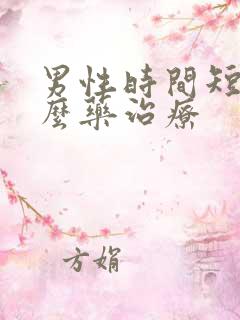 男性時間短
麼藥治療
方娟